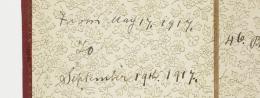 From May 17. 1917.
to
September 19th. 1917.